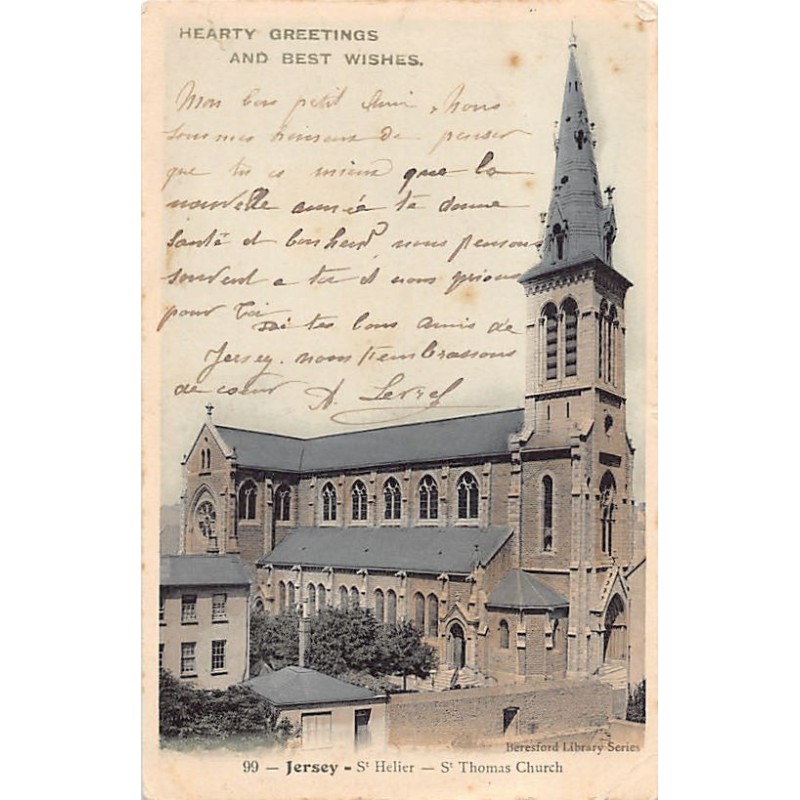 HEARTY GREETINGS
AND BEST WISHES.
Mon bon petit Ami, Nous
sommes heureux de penser
que tu es mieux que la
nouvelle année te donne
santé et bonheur nous pensons
souvent a toi et nous prions
pour toi
tes bons amis de
Jersey. nous t'embrassons
de cœur A.
Beresford Library Series
99 — Jersey - St Helier — St Thomas Church